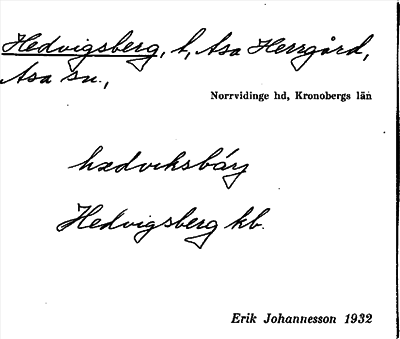 Hedvigsberg, t, Asa Herrgård,
Asa sn.,
Norrvidinge hd, Kronobergs län
hædviksbárj
Hedvigsberg kb.
Erik Johannesson 1932